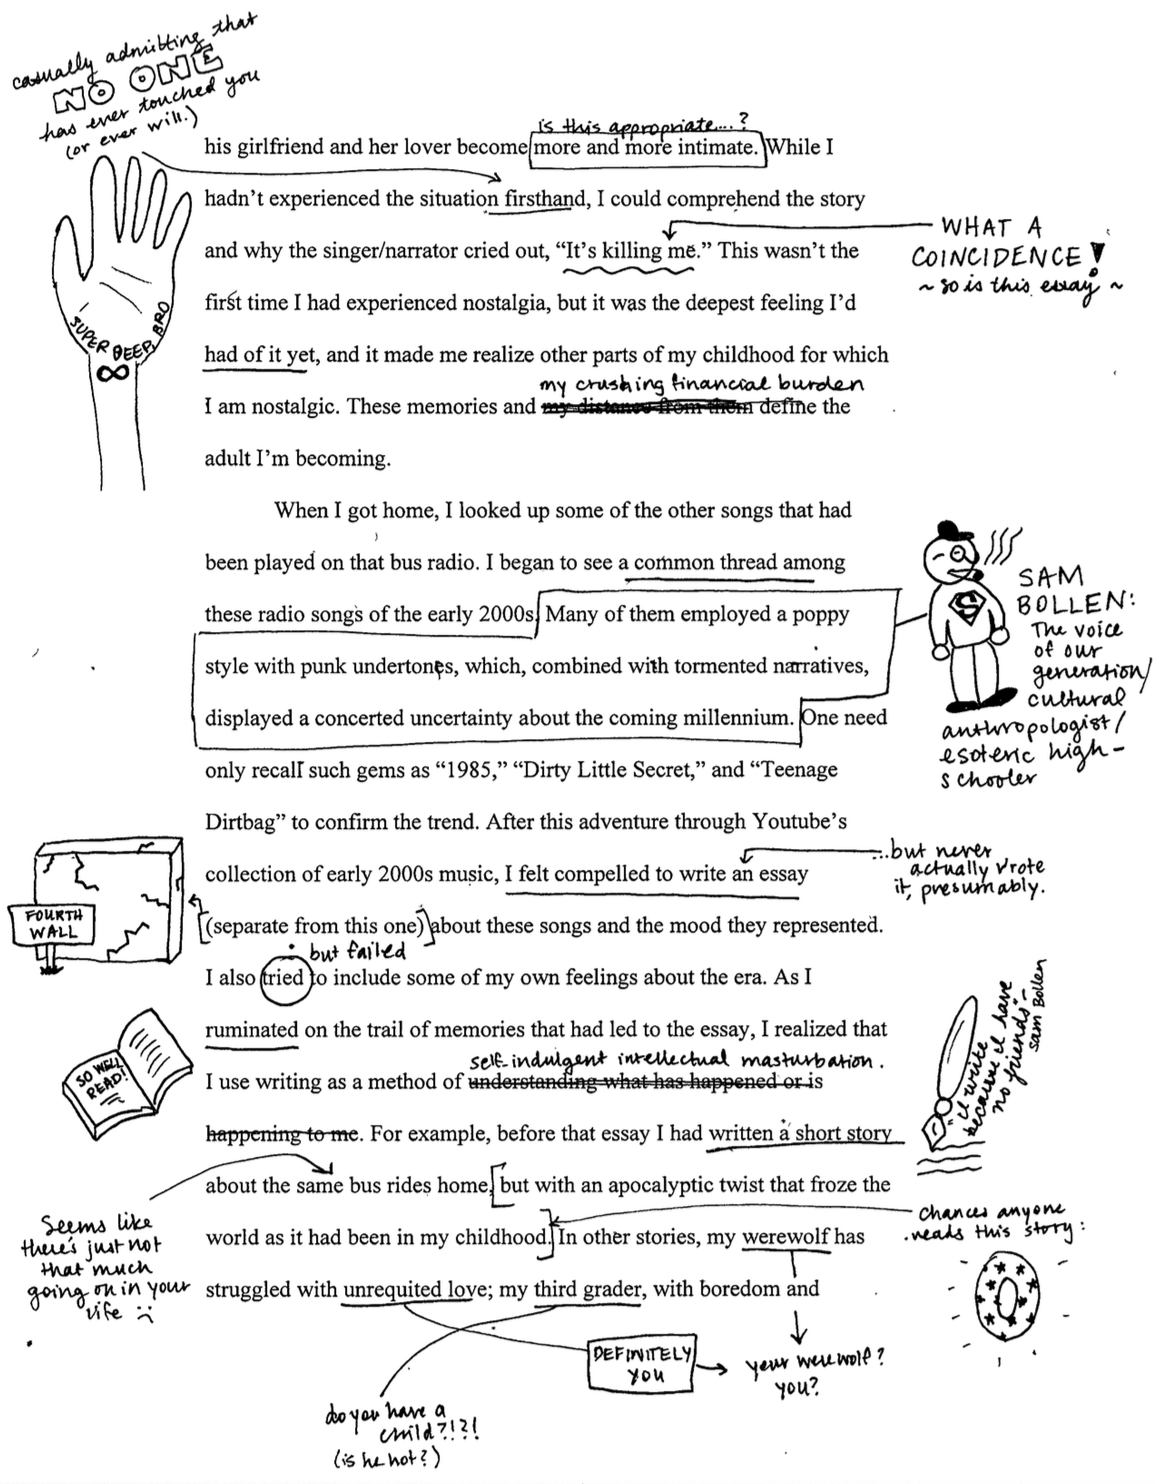 casually admitting that
NO ONE
has ever touched you
(or ever will.)
is this appropriate....?
his girlfriend and her lover become more and more intimate. While I
hadn't experienced the situation firsthand, I could comprehend the story
WHAT A
COINCIDENCE!
~ so is this essay ~
and why the singer/narrator cried out, “It's killing me.” This wasn't the
first time I had experienced nostalgia, but it was the deepest feeling I'd
SUPER DEEP, BRO
∞
had of it yet, and it made me realize other parts of my childhood for which
my crushing financial burden
I am nostalgic. These memories and my distance from them define the
adult I'm becoming.
When I got home, I looked up some of the other songs that had
been played on that bus radio. I began to see a common thread among
these radio songs of the early 2000s. Many of them employed a poppy
style with punk undertones, which, combined with tormented narratives,
displayed a concerted uncertainty about the coming millennium. One need
S
SAM
BOLLEN:
The voice
of our
generation/
cultural
anthropologist/
esoteric high-
schooler
only recall such gems as “1985,” “Dirty Little Secret,” and “Teenage
Dirtbag” to confirm the trend. After this adventure through Youtube's
collection of early 2000s music, I felt compelled to write an essay
...but never
actually wrote
it, presumably.
FOURTH
WALL
(separate from this one) about these songs and the mood they represented.
but failed
I also tried to include some of my own feelings about the era. As I
ruminated on the trail of memories that had led to the essay, I realized that
SO WELL
READ!
self-indulgent intellectual masturbation.
I use writing as a method of understanding what has happened or is
happening to me. For example, before that essay I had written a short story
"I write
because I have
no friends"-
Sam Bollen
about the same bus rides home, but with an apocalyptic twist that froze the
world as it had been in my childhood. In other stories, my werewolf has
struggled with unrequited love; my third grader, with boredom and
Seems like
there's just not
that much
going on in your
life :(
chances anyone
reads this story:
0
DEFINITELY
YOU
your werewolf?
you?
do you have a
child?!?!
(is he hot?)